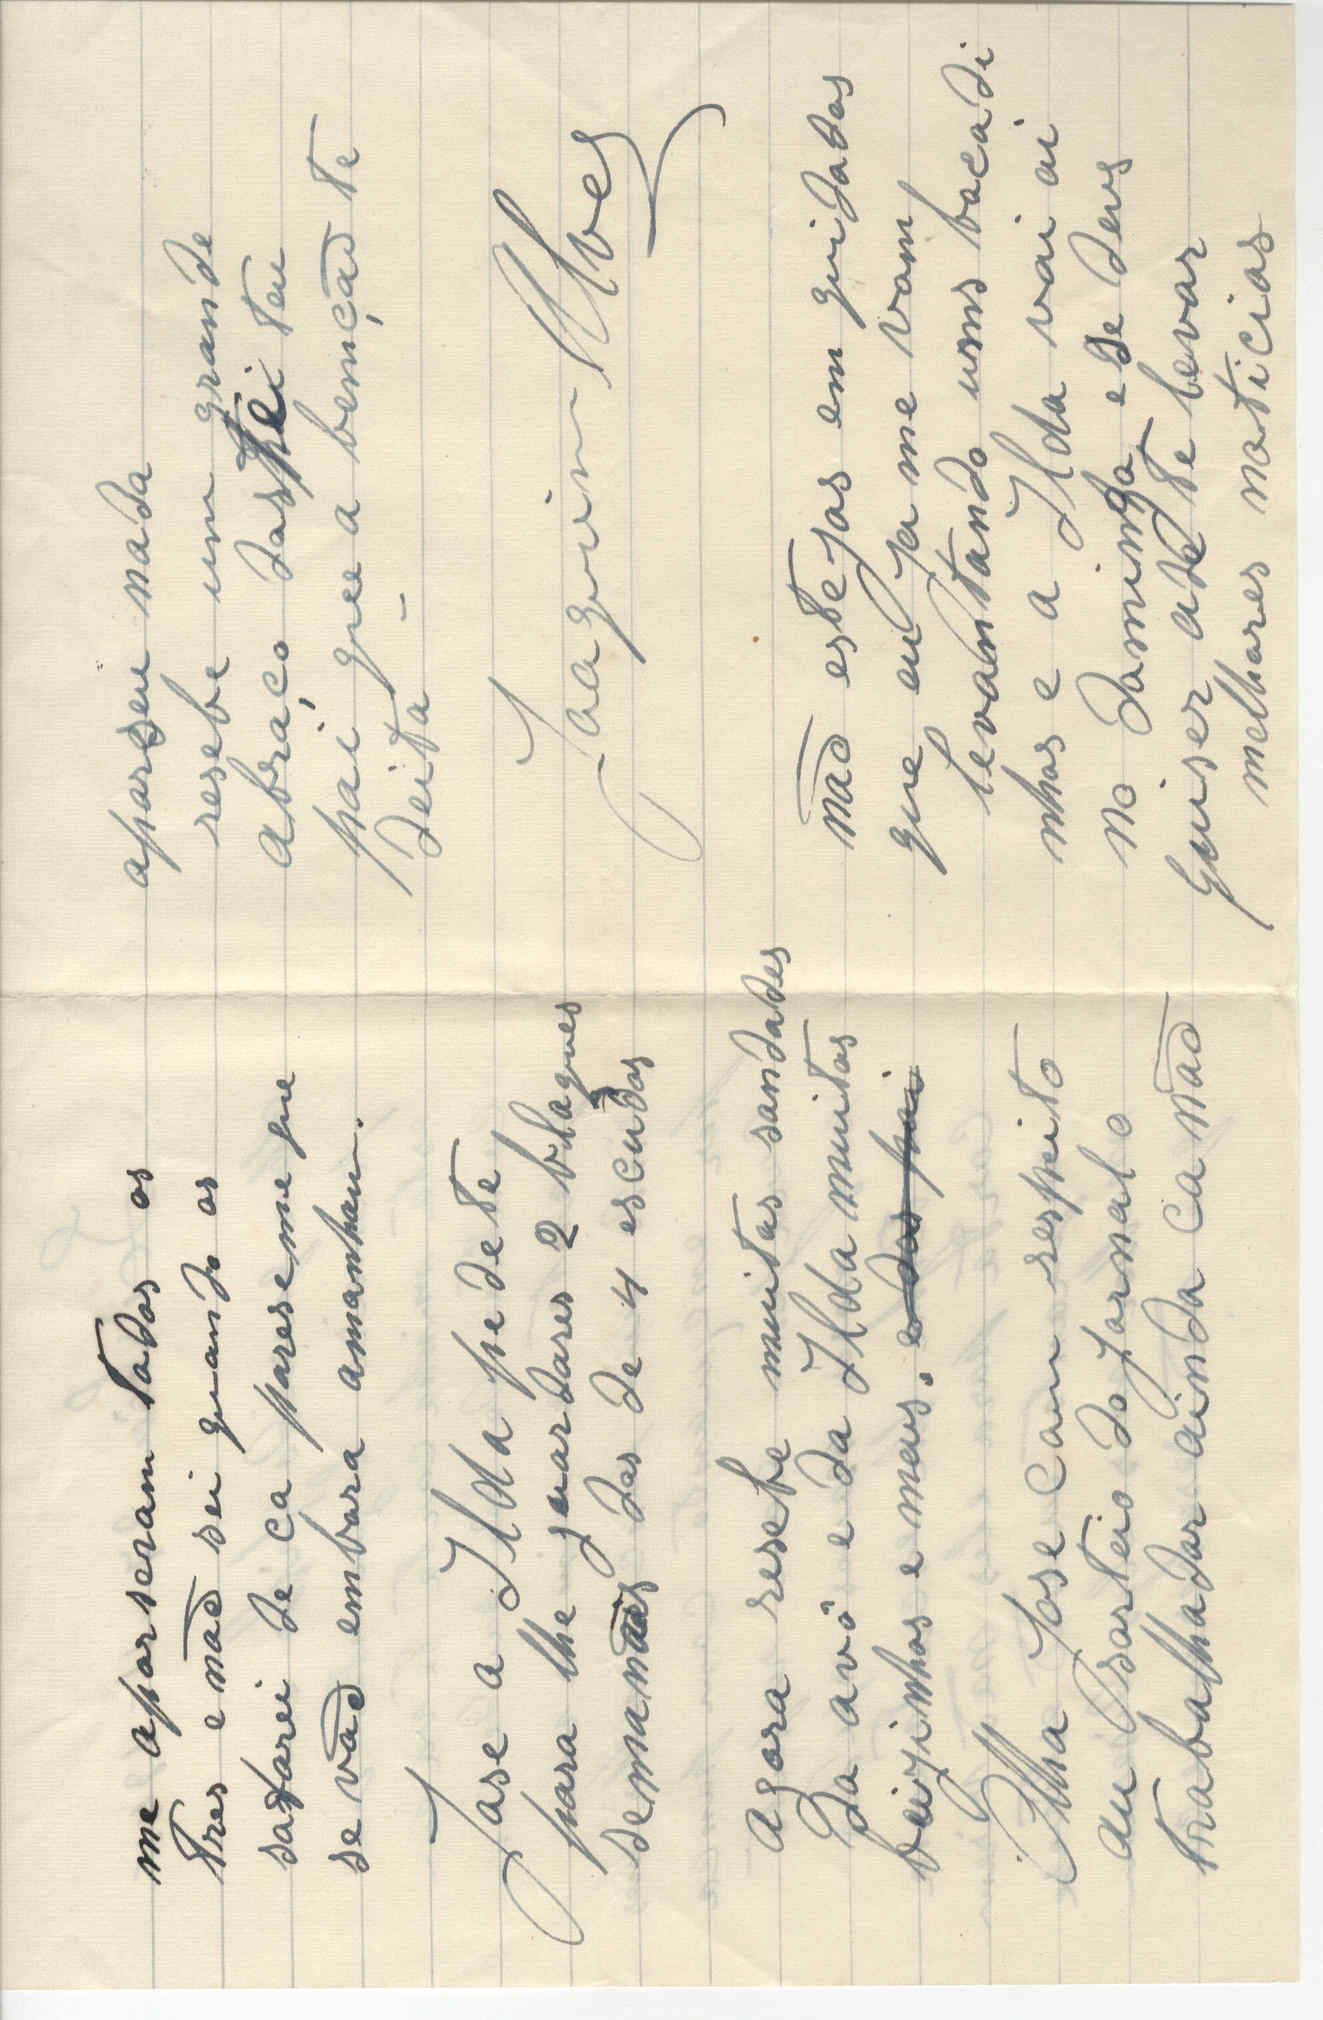 me aparseram todos os
tres e não sei quando os
satarei de ca pareseme que
se vão embora amanhan.
Jose a Ilda pedete
para lhe guardares 2 blaques
semanas das de 4 escudos
agora resebe muitas saudades
da avó e da Ilda muitas
beijinhos e meus. e dos pai
Olha Jose com respeito
au sorteio do jornal o
trabalhador ainda ca não
aparseu nada
resebe um grande
abraço dos pei teu
pai que a bemção te
deita -
Joaquim Alves
não estejas em guidados
que eu ja me vam
levantando uns bocadi
nhos e a Ilda vai ai
no daminga e se deus
quiser ade te levar
melhores noticias